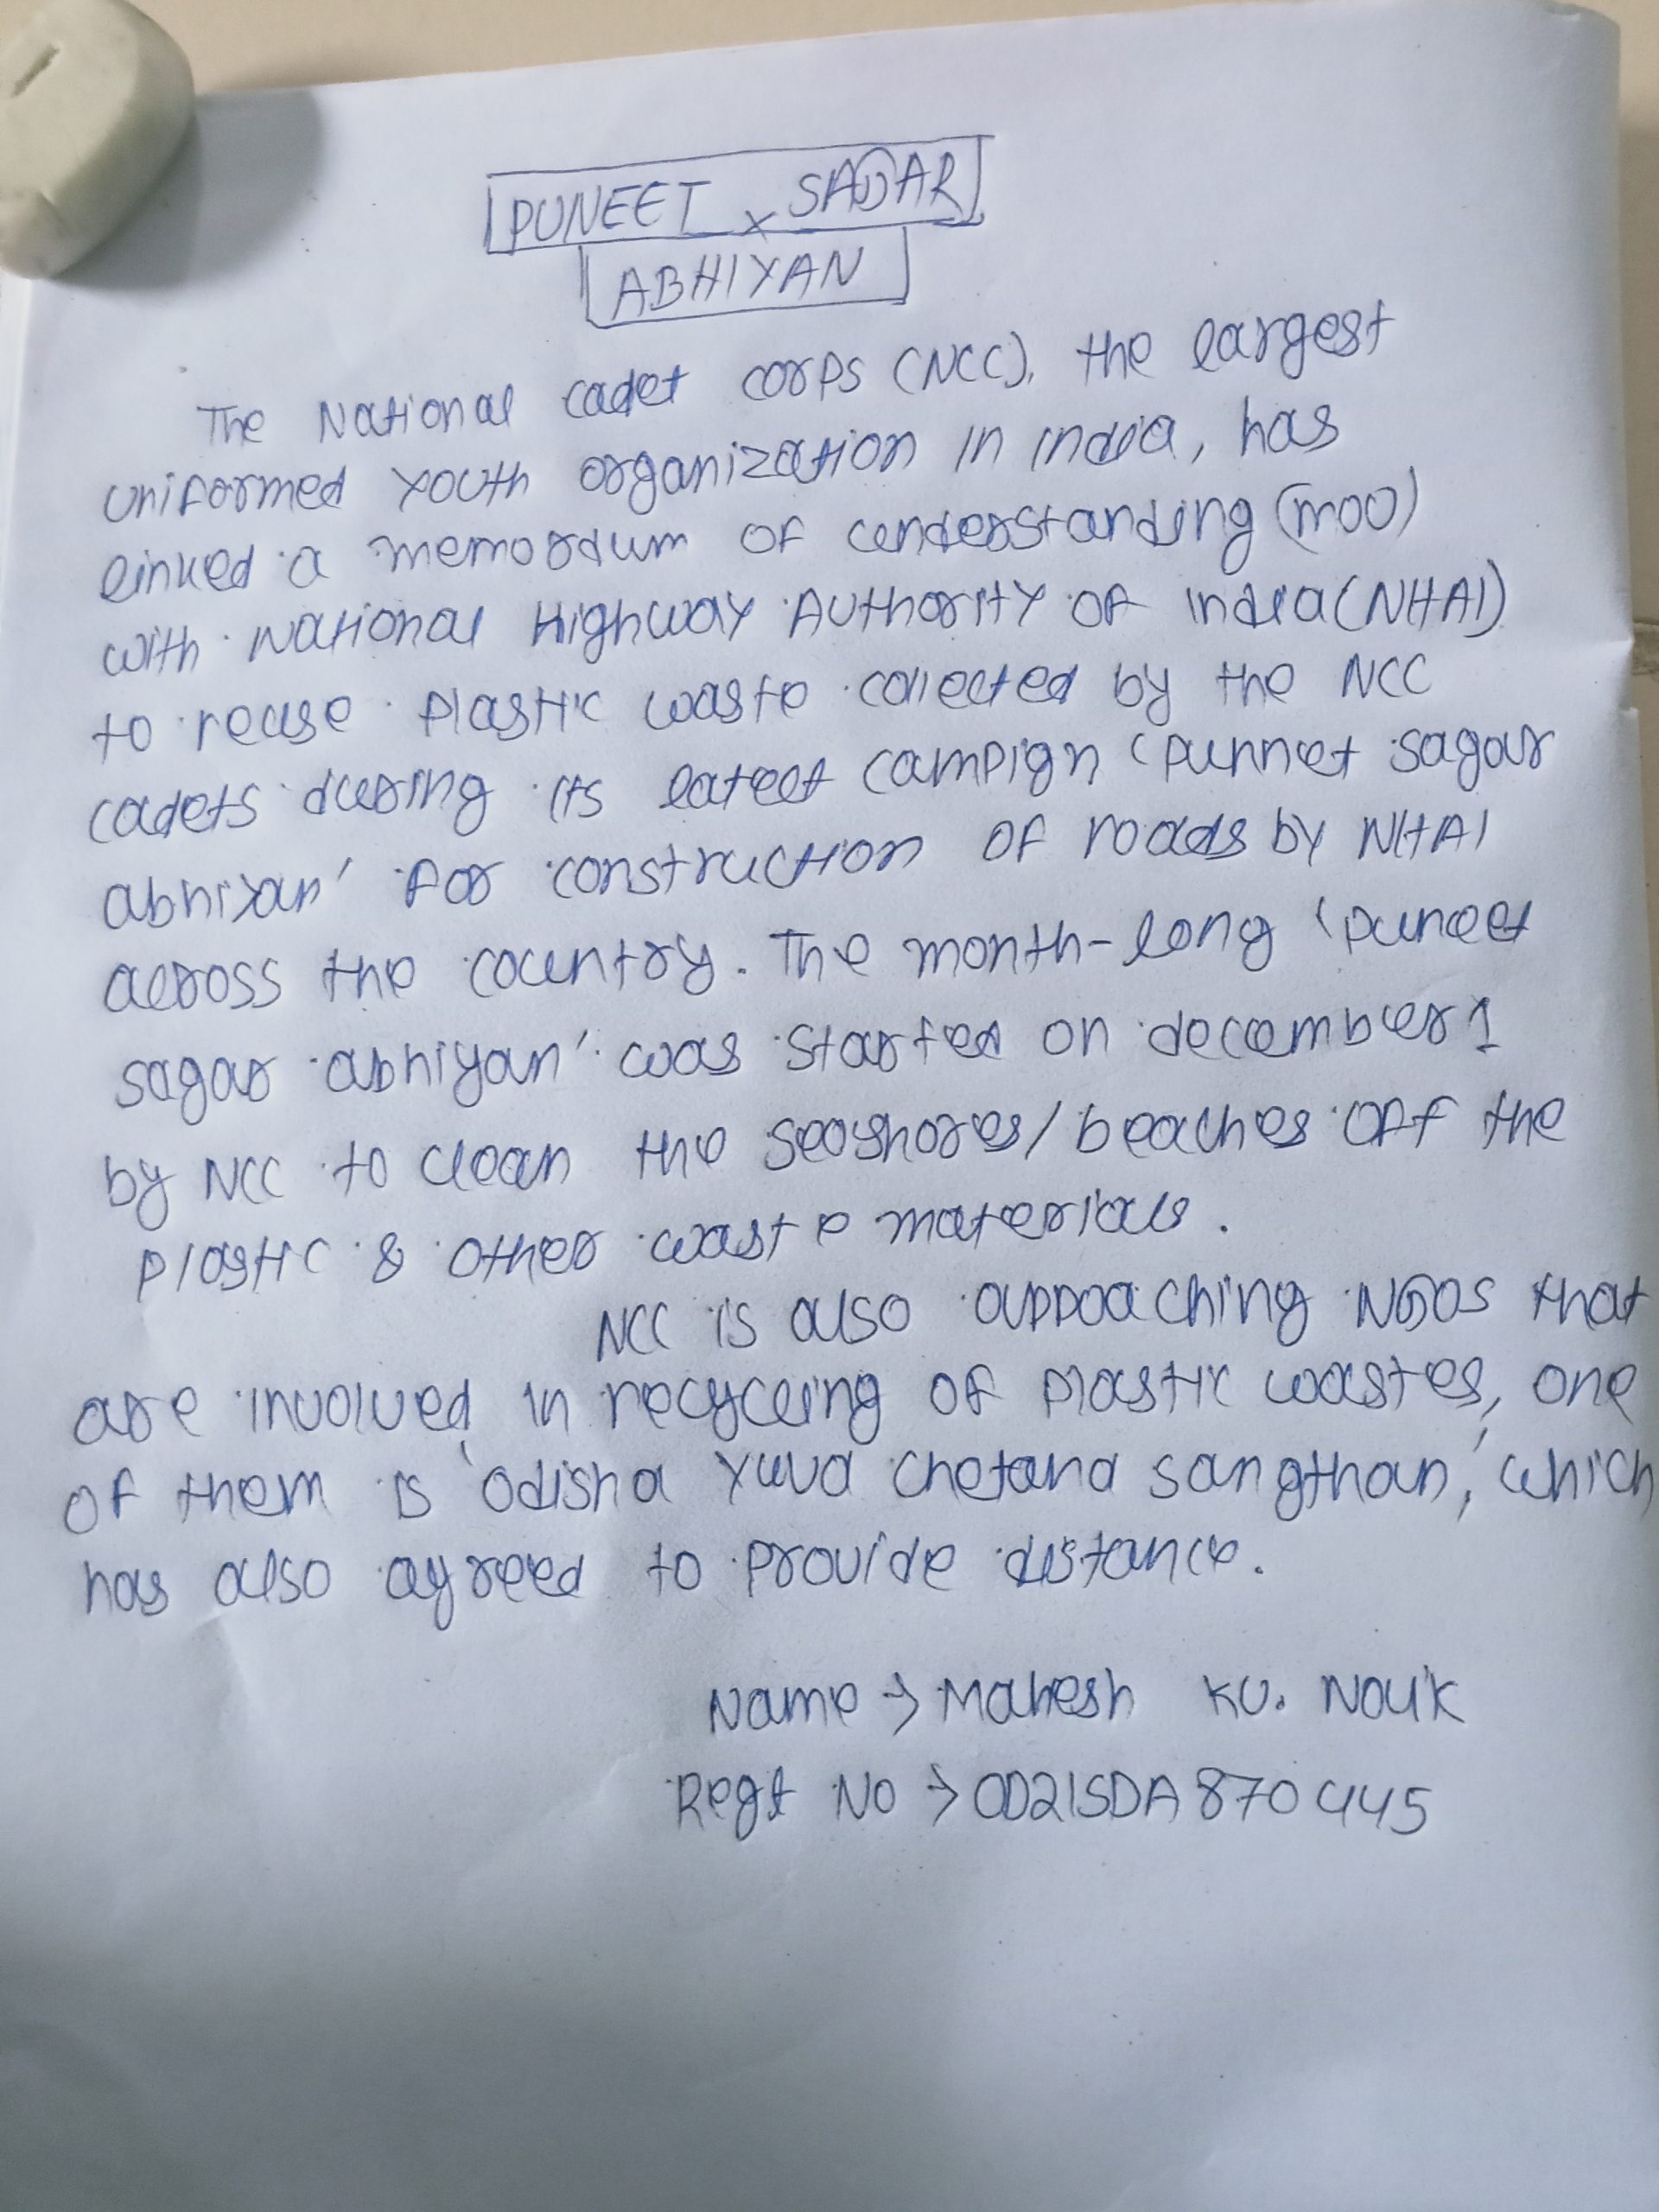 PUNEET SAGAR
ABHIYAN
The National cadet corps (NCC), the largest
uniformed youth organization in india, has
linked a memordum of understanding (moU)
with National Highway Authority of india (NHAI)
to reuse plastic waste collected by the NCC
cadets during its lateet campign 'punnet sagar
abhiyan' for construction of roads by NHAI
across the country. The month-long 'puneet
sagar abhiyan' was started on december 1
by NCC to clean the seashores/beaches off the
plastic & other waste materials.
NCC is also appoaching NGOS that
are involved in recycling of plastic wastes, one
of them is 'odisha yuva chetana sangthan,' which
has also agreed to provide distance.
Name → Mahesh KU. Naik
Regt No → OD21SDA870445